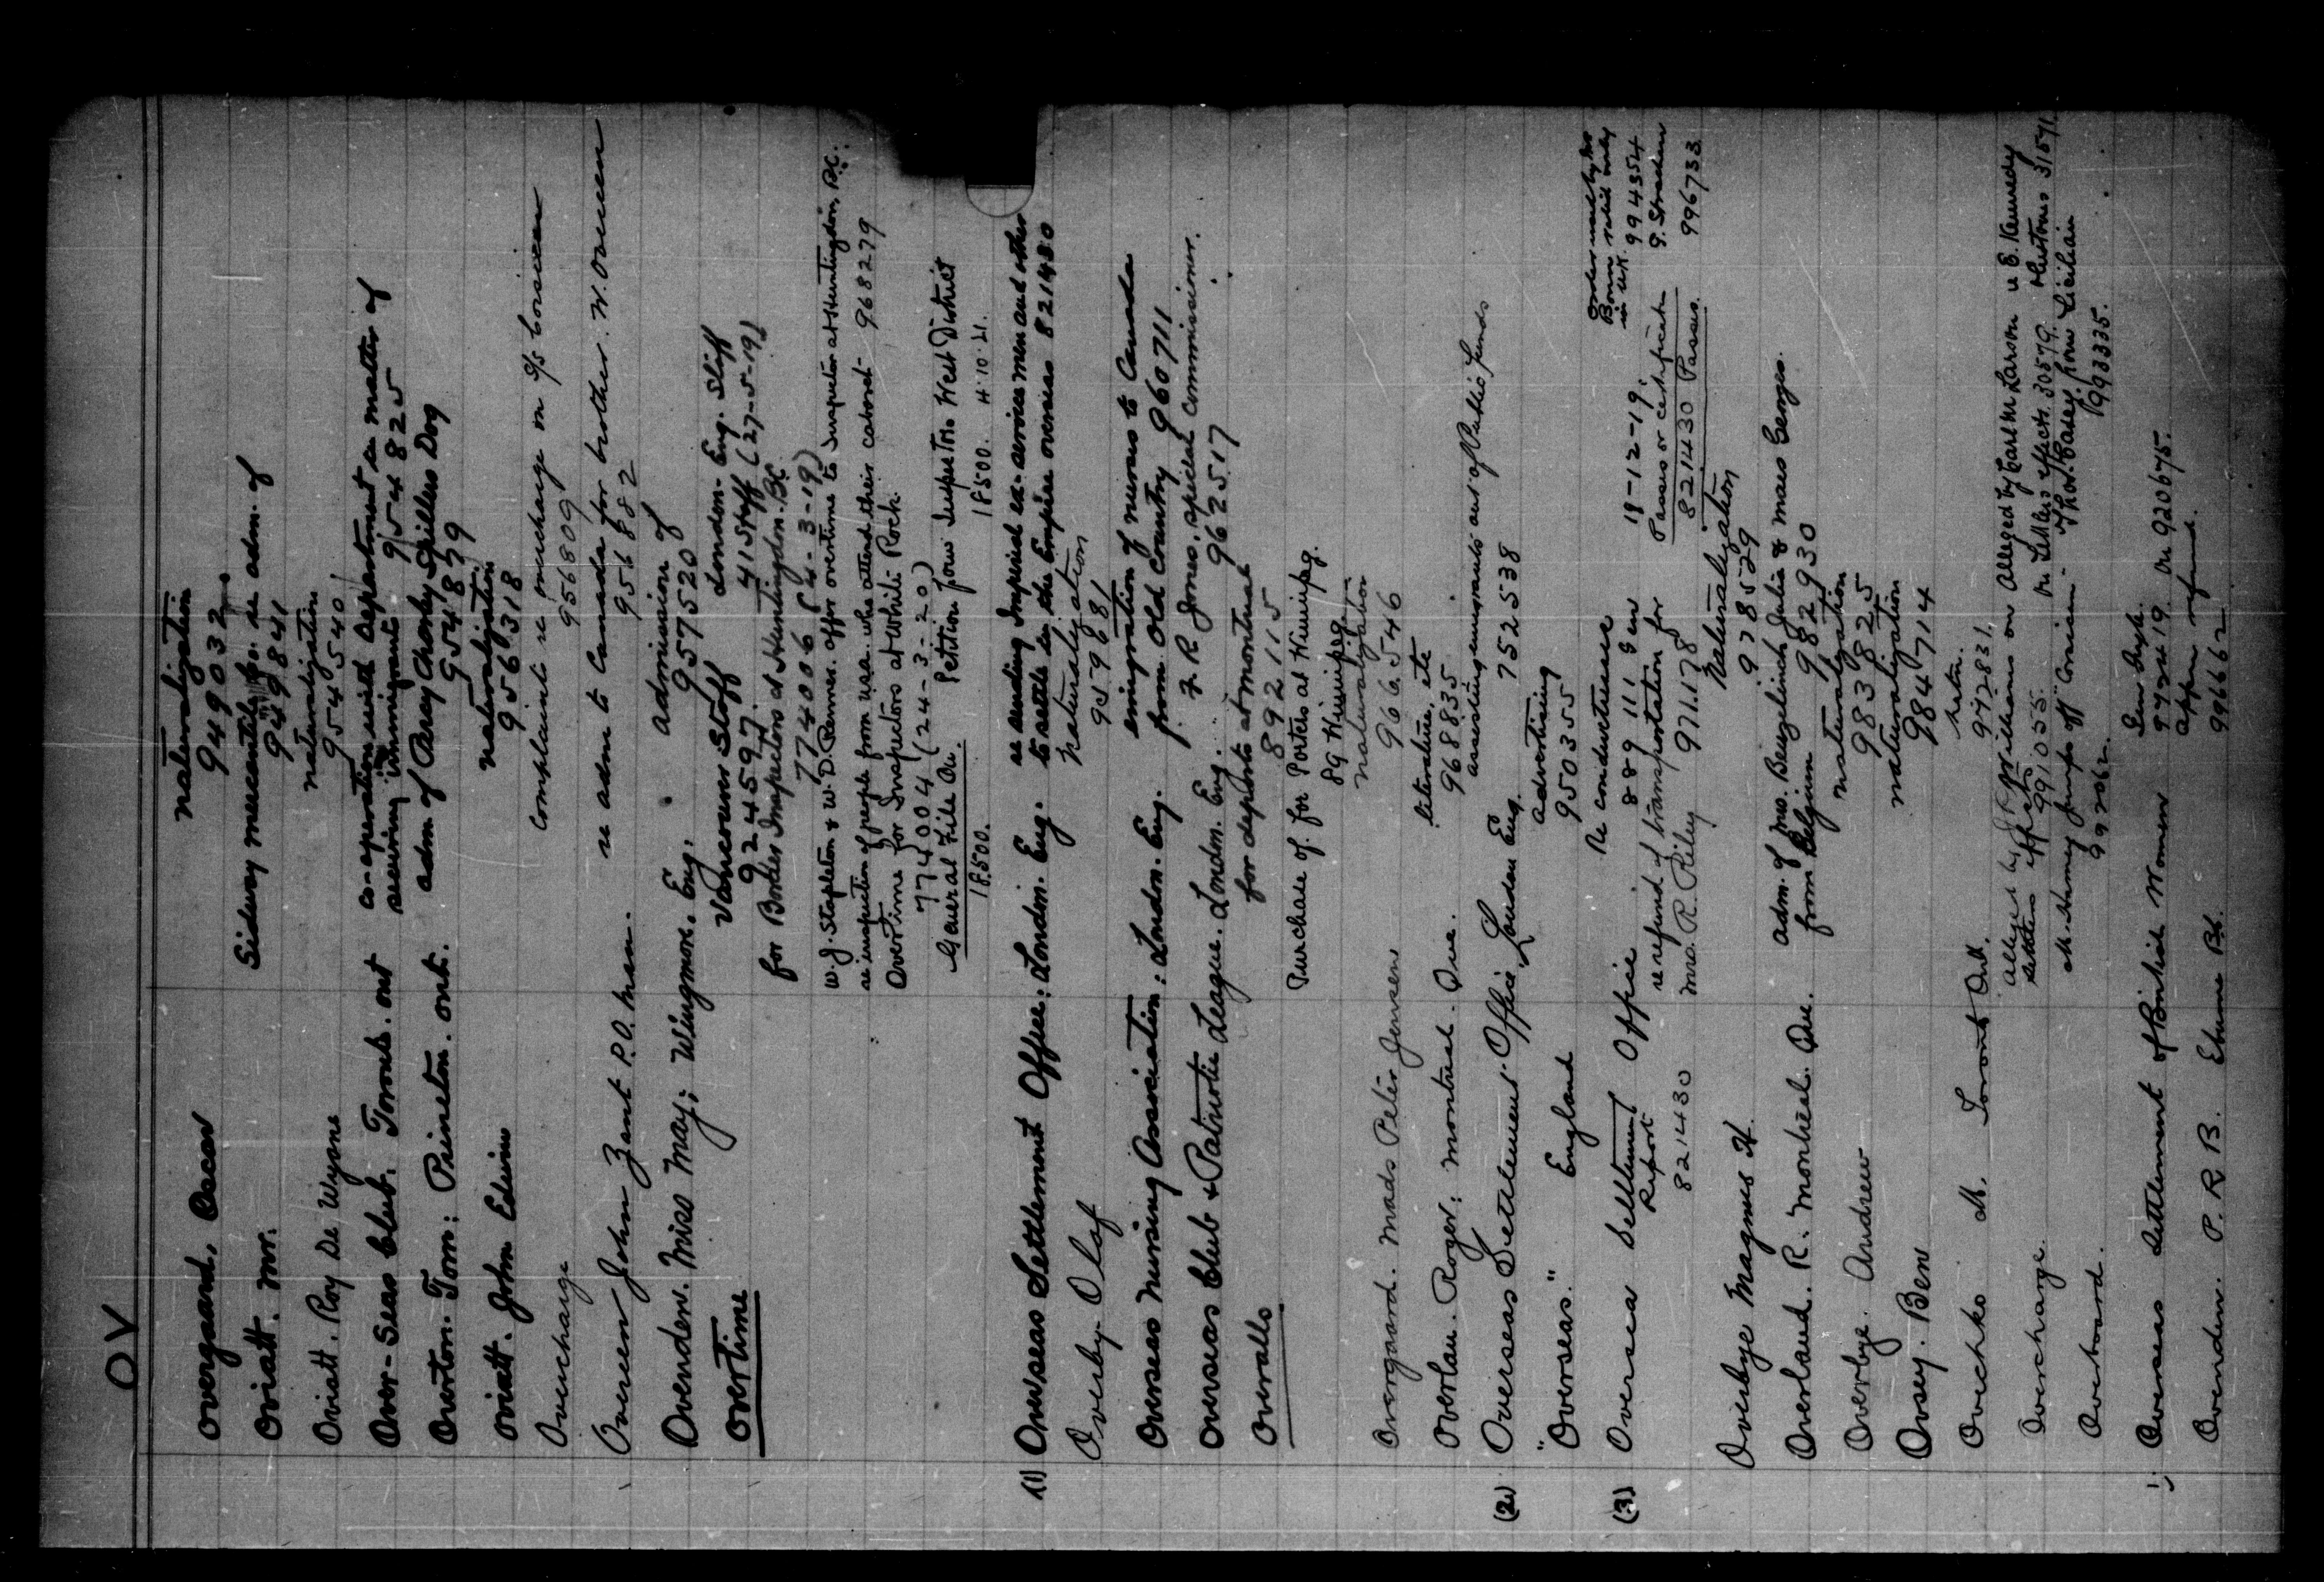 OV
Overgaard, Oscar naturalization
949032
Oviatt. Mr. Sidway mercantile Co. re adm. of
949841
Oviatt. Roy De Wyone naturalization
954540
Over-Seas Club. Toronto. Ont co-operation with department in matter of
receiving immigrants 954825
Overton. Tom: Princeton. Ont. adm of Percy Charley Spillers Dog
954879
Oviatt. John Edwin naturalization
956318
Overcharge complaint re overcharge on S/S Corsican
956809
Overeen John Zant P.O. Man. re adm to Canada for brother. W. Overeen
956882
Ovenden. Miss May; Wingmore. Eng. admission of
957520
Overtime Vancouver Staff London. Eng. Staff
924597 41 Staff (27-5-19)
for Border Inspectors at Huntingdon. B.C.
774006 (4-3-19)
W.J. Stapleton & W.D. offer overtime to Inspector at Huntingdon, B.C.
re inspection of people from U.S.A. who attend their cabaret 968279
Overtime for Inspectors at White Rock.
774004 (24-3-20)
General File On. Petition from Inspector. West District
18500. 18500. 4.10.21.
(1) Overseas Settlement Office: London. Eng. re sending Imperial ex-service men and other
to settle in the Empire overseas 821430
Overby. Olaf naturalization
959881
Overseas Nursing Association: London. Eng. emigration of nurses to Canada
from Old Country 960711
Overseas Club & Patriotic League. London. Eng. F. R. Jones, special commissioner.
962517
Overalls for deports at Montreal
892115
Purchase of for Porters at Winnipeg.
89 Winnipeg
Overgaard. Mads Peter Jensen naturalization
966546
Overlau. Roger: Montreal. Que. literature, etc
968835
(2) Overseas Settlement Office, London Eng. assisting emigrants out of Public funds
752538
"Overseas." England advertising
950355
(3) Oversea Settlement Office Re conductresses
889111 Gen
Report 821430
re refund of transportation for
Mrs. R. Riley 971178
18-12-19.
Passes or certificates
821430 Passes.
in U.K. 994354
G. Strachan
996733
Overbye Magnus H. Naturalization
978529
Overlaud. R. Montreal. Que. adm. of Mrs. Julia & Georges
from Belgium 982930
Overbye. Andrew naturalization
983825
Ovsey. Ben naturalization
984714
Ovechko M. Toronto Ont. Natn.
972831.
Overcharge. Alleged by Williams on Alleged by Carl M. Larson
settlers effects 991055. on settlers effects. 30579.
31571
Overboard. M. Harney jumps off "Corsican" Thos. Casey from
992062. 993335.
Overseas Settlement of British Women
972419 On 920675.
Ovenden. P. R. B. Eburne B.C. refund.
996662